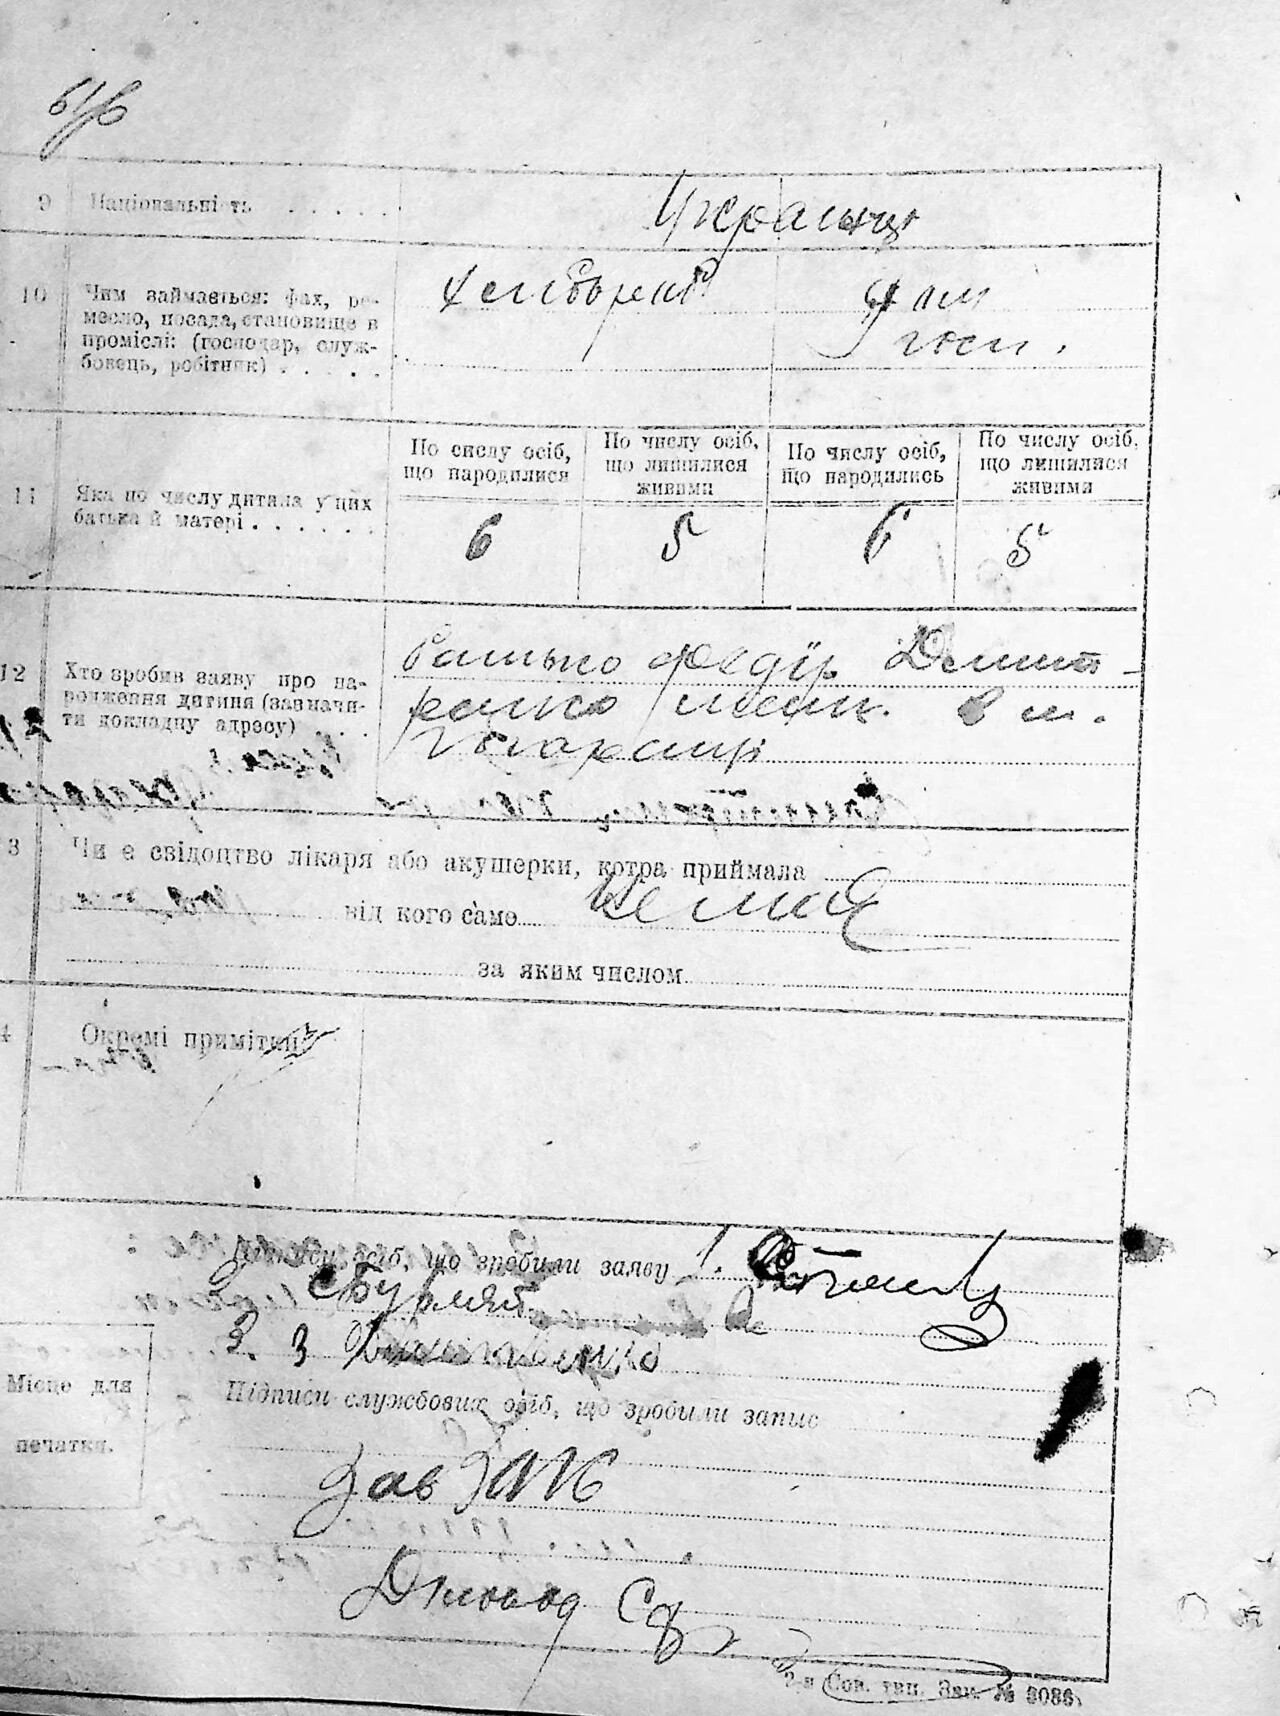 9 Національність . . . . .
Українці
10 Чим займається: фах, ре-
месло, посада, становище в
проміслі: (господар, служ-
бовець, робітник) . . . . .
Хлібороб
дом
госп.
По числу осіб,
що народилися
По числу осіб,
що лишилися
живими
По числу осіб,
що народились
По числу осіб,
що лишилися
живими
11 Яка по числу дитина у цих
батька й матері . . . . . .
6 5 6 5
12 Хто зробив заяву про на-
родження дитини (зазначи-
ти докладну адресу) . . .
батько Федір Дмит-
ренко мешк. в м.
3 Чи є свідоцтво лікаря або акушерки, котра приймала
від кого саме немає
за яким числом
4 Окремі примітки
Підписи осіб, що зробили заяву 1.
2.
3. З Дмитренко
Підписи службових осіб, що зробыли запис
Місце для
печатки.
Зав ЗАГС
Діловод
2-я Сов. тип. Зак. № 3086